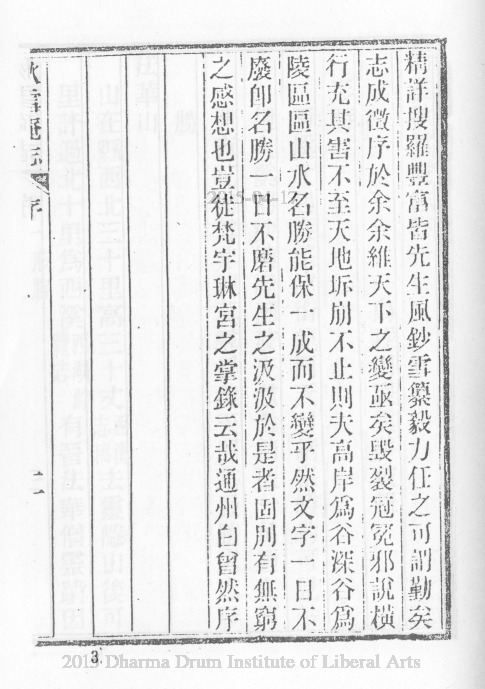 精詳搜羅豐富皆先生風鈔雪纂毅力任之可謂勤矣
志成徵序於余余維天下之變亟矣毀裂冠冕邪說橫
行充其害不至天地坼崩不止則夫高岸爲谷深谷爲
陵區區山水名勝能保一成而不變乎然文字一日不
廢卽名勝一日不磨先生之汲汲於是者固別有無窮
之感想也豈徒梵宇琳宮之掌錄云哉通州白曾然序
雪菴志
序
二
3
2015-04-17
2015 Dharma Drum Institute of Liberal Arts